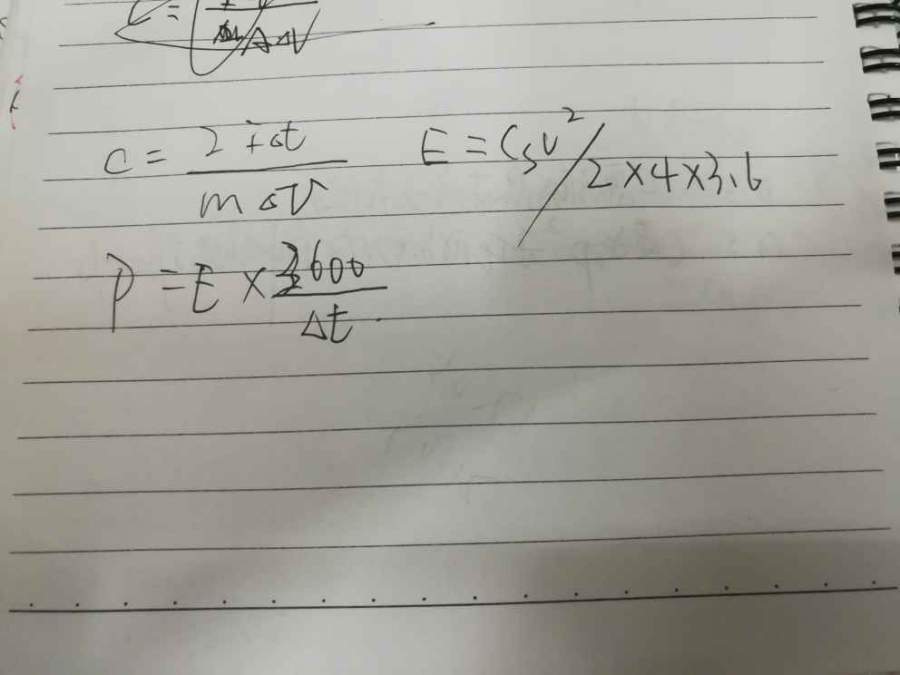 C = 2 I Δt / m ΔV    E = Cs V² / 2×4×3.6
P = E × 3600 / Δt